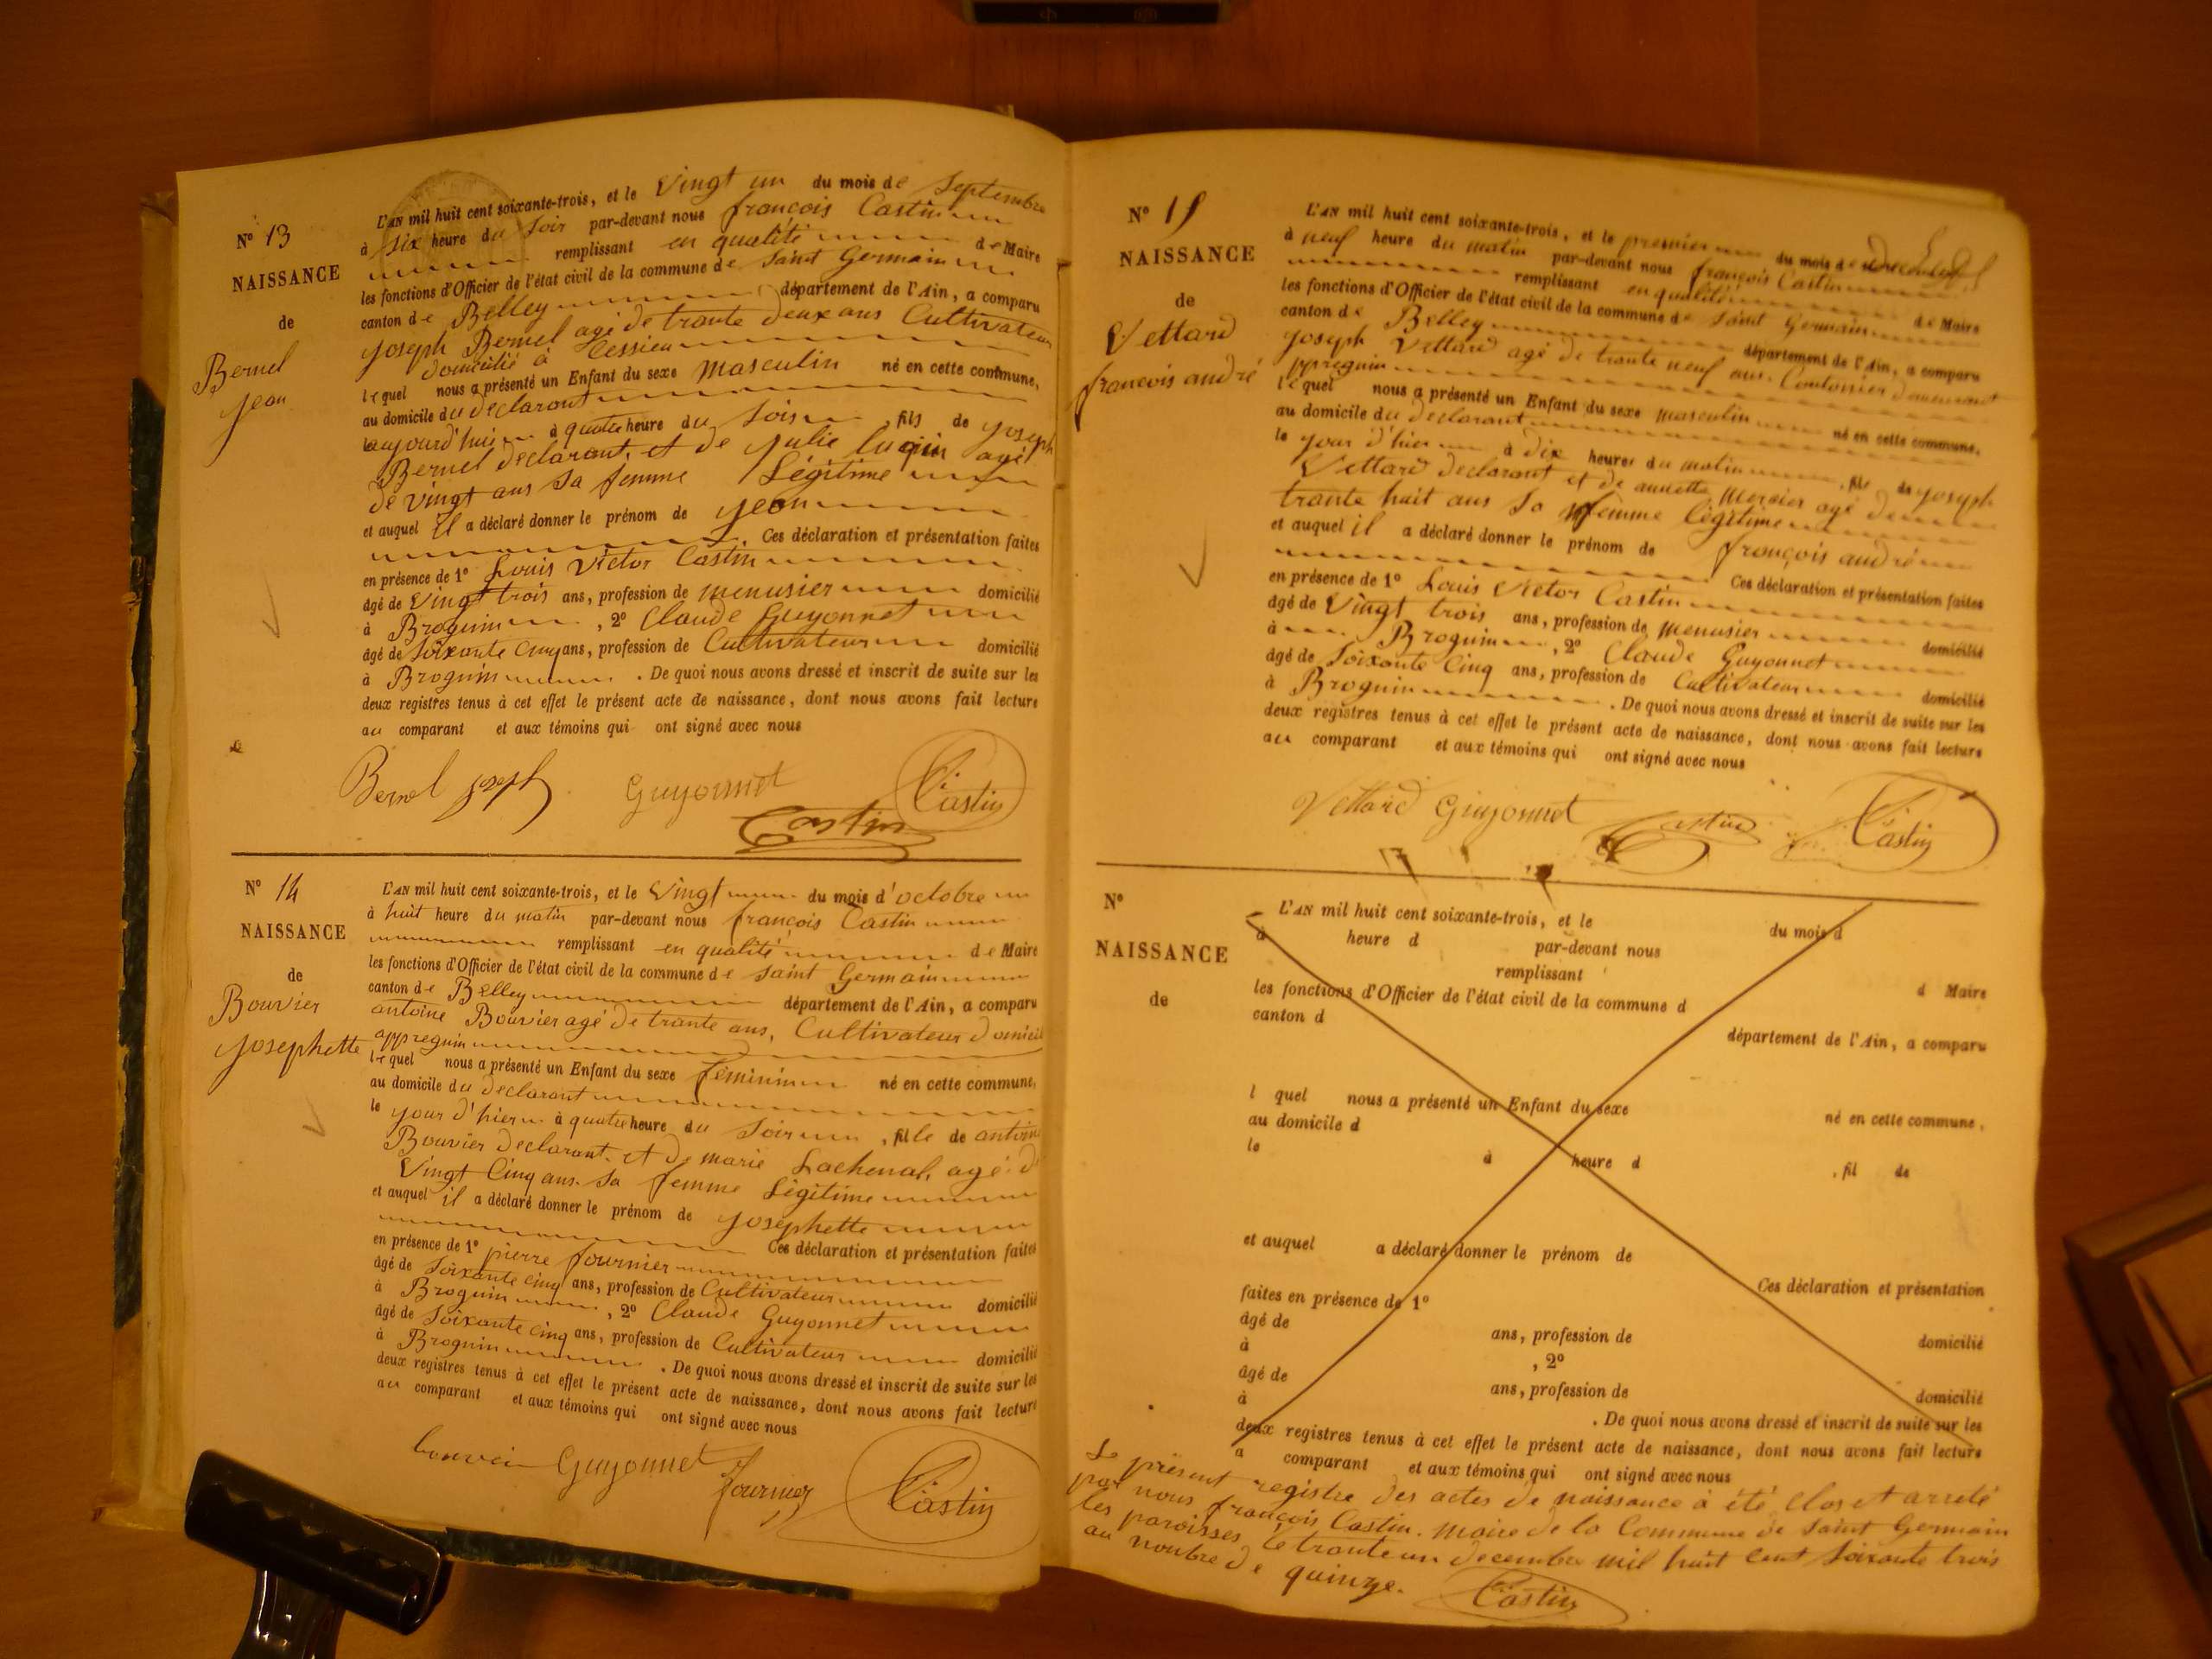 N° 13
NAISSANCE
de
Bernel
Jean
L'AN mil huit cent soixante-trois, et le Vingt un du mois de Septembre
à six heure du Soir par-devant nous françois Castin
remplissant en qualité de Maire
les fonctions d'Officier de l'état civil de la commune de Saint Germain
canton de Belley département de l'Ain, a comparu
joseph Bernel agé de trante deux ans Cultivateur
domicilié à Cessieu
lequel nous a présenté un Enfant du sexe Masculin né en cette commune,
au domicile du declarant
le aujourd'hui à quatre heure du Soir fils de joseph
Bernel declarant, et de julie lugin agé
de vingt ans Sa femme Légitime
et auquel il a déclaré donner le prénom de jean
Ces déclaration et présentation faites
en présence de 1° Louis Victor Castin
âgé de Vingt trois ans, profession de menusier domicilié
à Brognin , 2° Claude Guyonnet
âgé de Soixante Cinq ans, profession de Cultivateur domicilié
à Brognin . De quoi nous avons dressé et inscrit de suite sur les
deux registres tenus à cet effet le présent acte de naissance, dont nous avons fait lecture
au comparant et aux témoins qui ont signé avec nous
Bernel joseph Guyonnet Castin
Castin
N° 14
NAISSANCE
de
Bouvier
josephette
L'AN mil huit cent soixante-trois, et le Vingt du mois d'octobre
à huit heure du matin par-devant nous françois Castin
remplissant en qualité de Maire
les fonctions d'Officier de l'état civil de la commune de Saint Germain
canton de Belley département de l'Ain, a comparu
antoine Bouvier agé de trante ans, Cultivateur domicil
appregnin
lequel nous a présenté un Enfant du sexe féminin né en cette commune,
au domicile du declarant
le jour d'hier à quatre heure du Soir , fille de antoine
Bouvier declarant, et de marie Lachenal, agé de
Vingt Cinq ans Sa femme Légitime
et auquel il a déclaré donner le prénom de josephette
Ces déclaration et présentation faites
en présence de 1° pierre fournier
âgé de Soixante cinq ans, profession de Cultivateur domicilié
à Brognin , 2° Claude Guyonnet
âgé de Soixante cinq ans, profession de Cultivateur domicilié
à Brognin . De quoi nous avons dressé et inscrit de suite sur les
deux registres tenus à cet effet le présent acte de naissance, dont nous avons fait lecture
au comparant et aux témoins qui ont signé avec nous
Guyonnet fournier Castin
N° 15
NAISSANCE
de
Vettard
francois andré
L'AN mil huit cent soixante-trois, et le premier du mois de
à neuf heure du matin par-devant nous françois Castin
remplissant en qualité de Maire
les fonctions d'Officier de l'état civil de la commune de Saint Germain
canton de Belley département de l'Ain, a comparu
joseph Vettard agé de trante neuf ans. Cantonier demeurant
appregnin
lequel nous a présenté un Enfant du sexe masculin né en cette commune,
au domicile du declarant
le jour d'hier à dix heures du matin , fils de joseph
Vettard declarant et de annette Mercier agé de
trante huit ans Sa femme légitime
et auquel il a déclaré donner le prénom de françois andré
Ces déclaration et présentation faites
en présence de 1° Louis Victor Castin
âgé de Vingt trois ans, profession de menusier domicilié
à Brognin , 2° Claude Guyonnet
âgé de Soixante Cinq ans, profession de Cultivateur domicilié
à Brognin . De quoi nous avons dressé et inscrit de suite sur les
deux registres tenus à cet effet le présent acte de naissance, dont nous avons fait lecture
au comparant et aux témoins qui ont signé avec nous
Vettard Guyonnet Castin Castin
N°
NAISSANCE
de
L'AN mil huit cent soixante-trois, et le du mois d
à heure d par-devant nous
remplissant d Maire
les fonctions d'Officier de l'état civil de la commune d
canton d département de l'Ain, a comparu
l quel nous a présenté un Enfant du sexe né en cette commune,
au domicile d
le à heure d , fil de
et auquel a déclaré donner le prénom de
Ces déclaration et présentation
faites en présence de 1°
âgé de ans, profession de domicilié
à , 2°
âgé de ans, profession de domicilié
à . De quoi nous avons dressé et inscrit de suite sur les
deux registres tenus à cet effet le présent acte de naissance, dont nous avons fait lecture
a comparant et aux témoins qui ont signé avec nous
Le présent registre des actes de naissance à été Clos et arreté
par nous françois Castin. maire de la Commune de Saint Germain
les paroisses le trante un decembre mil huit cent Soixante trois
au nombre de quinze.
Castin